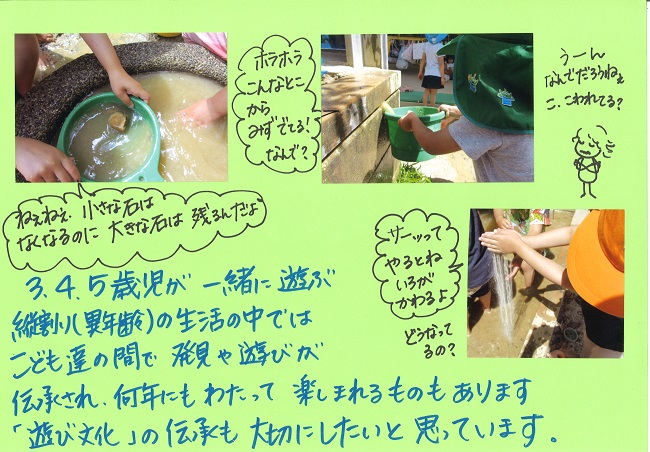 ホラホラ
こんなとこ
から
みずでてる!
なんで?
うーん
なんでだろうねぇ
こ、こわれてる?
ねぇねぇ 小さな石は
なくなるのに 大きな石は 残るんだよ
サーッって
やるとね
いろが
かわるよ
どうなって
るの?
3.4.5歳児が 一緒に遊ぶ
縦割り(異年齢)の生活の中では
こども達の間で 発見や遊びが
伝承され、何年にもわたって 楽しまれるものもあります
「遊び文化」の伝承も 大切にしたいと 思っています。